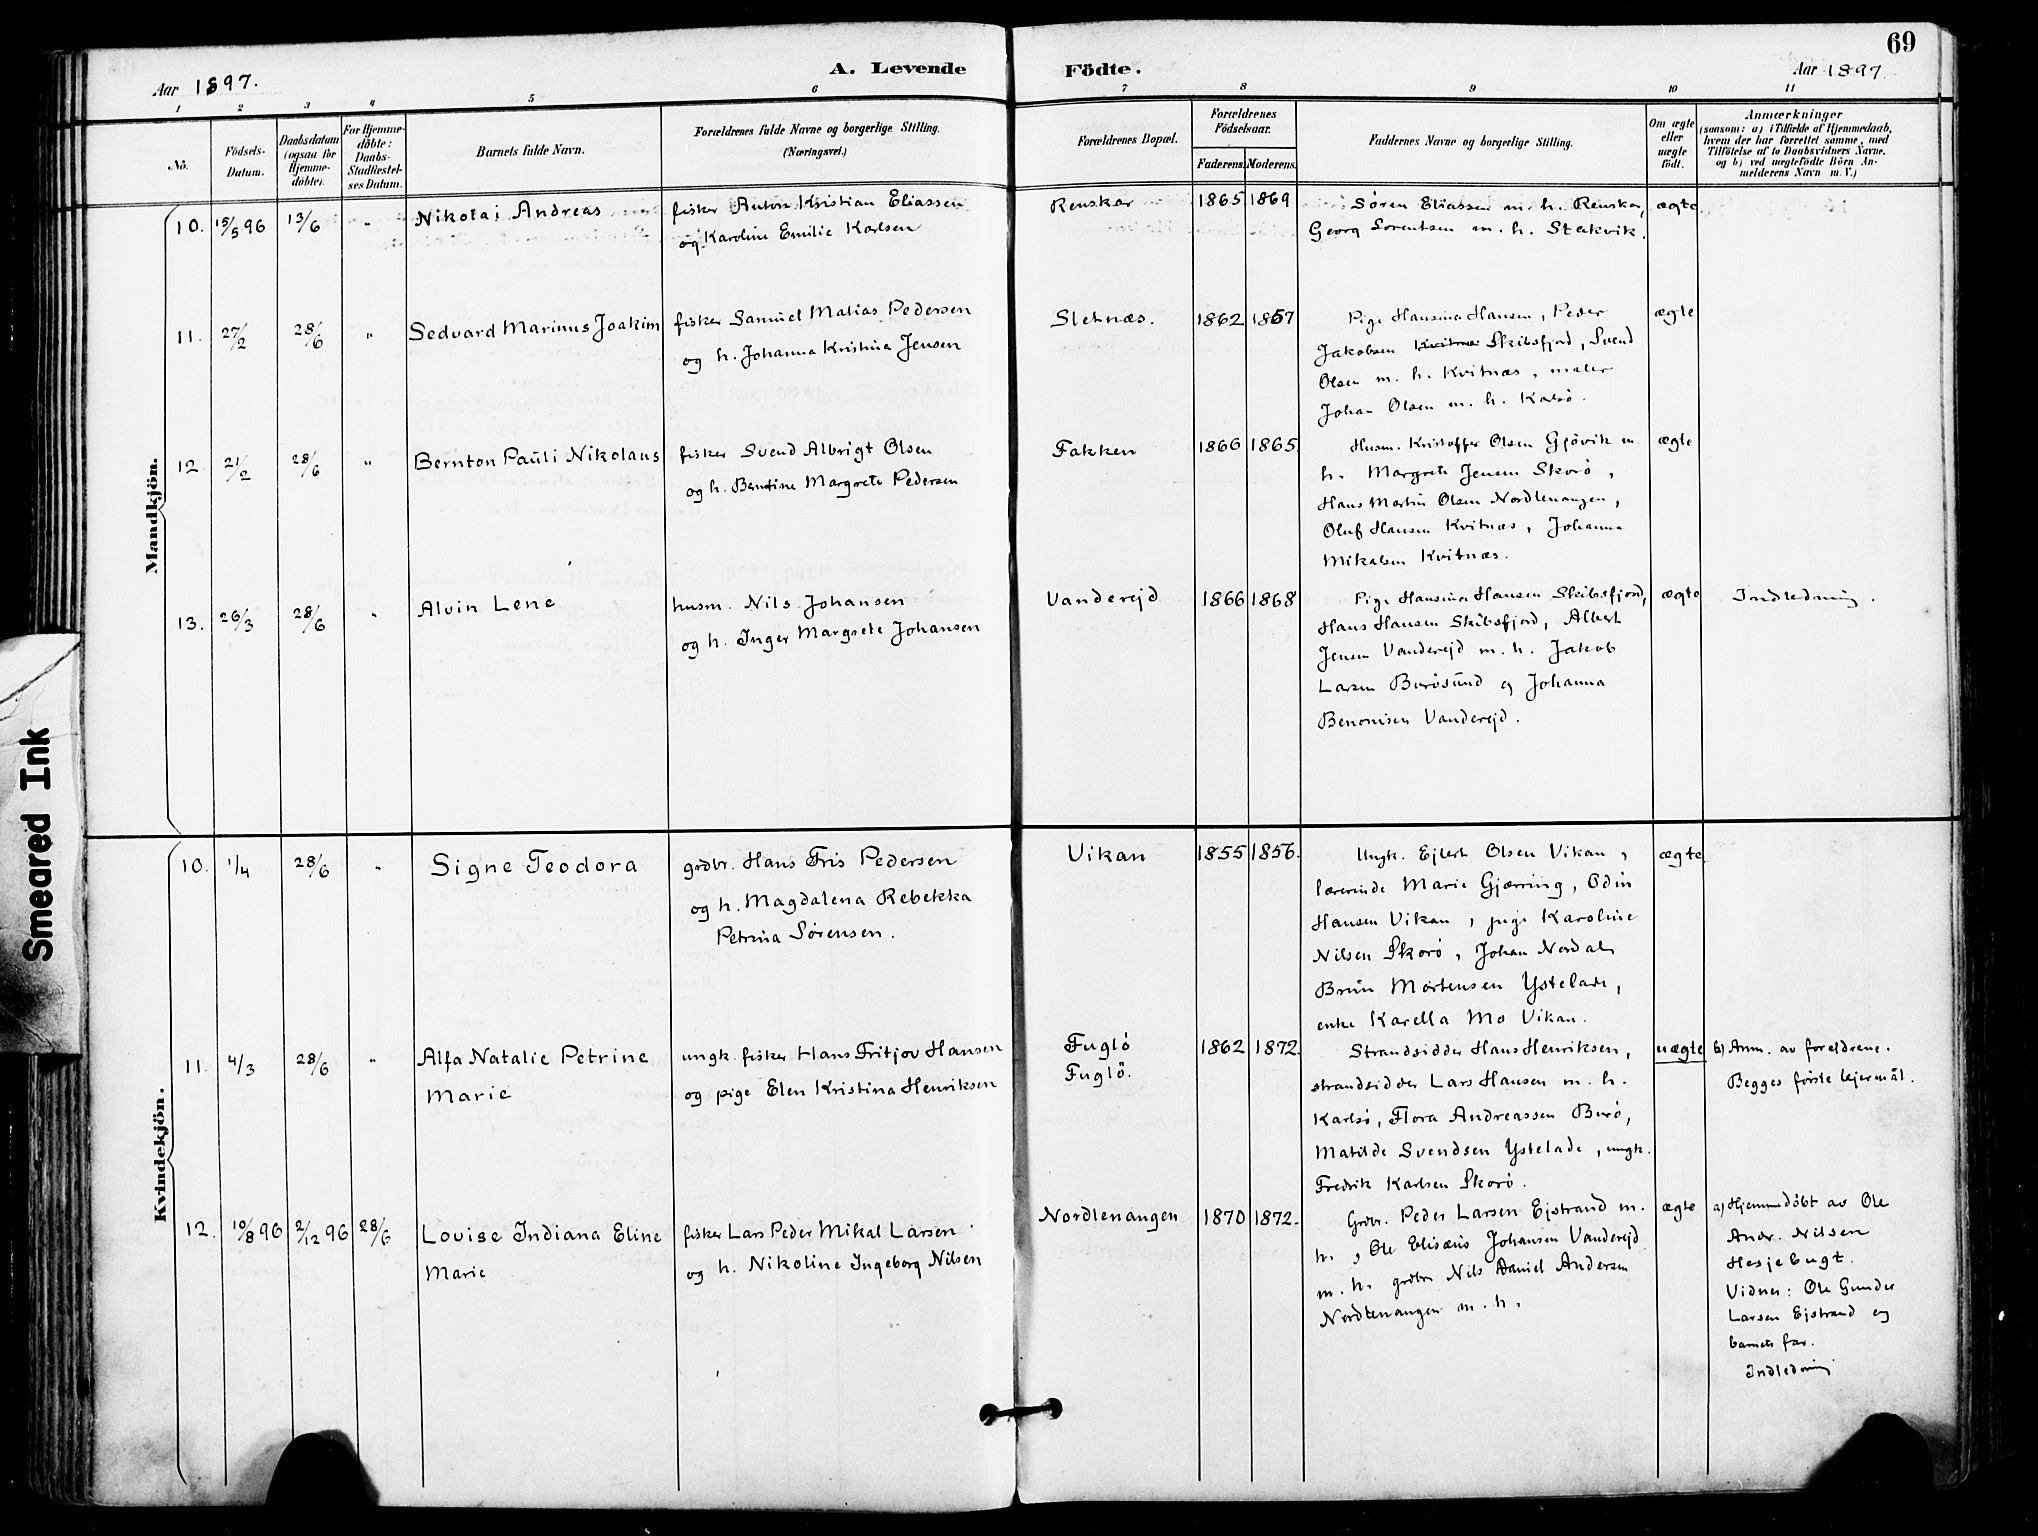 69
Aar 1897.
A. Levende Födte.
Aar 1897.
1 2 3 4 5 6 7 8 9 10 11
No.
Födsels-Datum.
Daabsdatum (ogsaa for Hjemmedöbte).
For Hjemmedöbte: Daabs-Stadfæstelses Datum.
Barnets fulde Navn.
Forældrenes fulde Navne og borgerlige Stilling.
(Næringsvei.)
Forældrenes Bopæl.
Forældrenes Födselsaar.
Faderens. Moderens.
Faddernes Navne og borgerlige Stilling.
Om ægte eller uægte födt.
Anmærkninger
(saasom: a) i Tilfælde af Hjemmedaab,
hvem der har forrettet samme, med
Tilföielse af to Daabsvidners Navne,
og b) ved uægtefödte Börn An-
melderens Navn m. V.)
Mandkjön.
10. 15/5 96 13/6 " Nikolai Andreas
fisker Anton Kristian Eliassen
og Karoline Emilie Karlsen
Renskar 1865 1869
Søren Eliassen m. h. Renskar,
Georg Sorentsen m. h. Stakvik.
ægte
11. 27/2 28/6 " Sedvard Marinus Joakim
fisker Samuel Matias Pedersen
og h. Johanna Kristina Jensen
Sletnæs. 1862 1857
Pige Hansina Hansen, Peder
Jakobsen Kvitnæs Skibsfjord, Svend
Olsen m. h. Kvitnæs, maler
Johan Olsen m. h. Kalsö.
ægte
12 21/2 28/6 " Bernton Pauli Nikolaus
fisker Svend Albrigt Olsen
og h. Berntine Margrete Pedersen
Fakken 1866 1865.
Husm. Kristoffer Olsen Gjövik m
h. Margrete Jensen Skorö,
Hans Martin Olsen Nordlenangen,
Oluf Hansen Kvitnæs, Johanna
Mikalsen Kvitnæs.
ægte
13. 26/3 28/6 " Alvin Lene
husm. Nils Johansen
og h. Inger Margrete Johansen
Vanderejd 1866 1868
Pige Hansina Hansen Skibsfjord,
Hans Hansen Skibsfjord, Albert
Jensen Vanderejd m. h. Jakob
Larsen Burösund og Johanna
Benonisen Vanderejd.
ægte
Indledning.
Kvindekjön.
10. 1/4 28/6 " Signe Teodora
grdbr. Hans Fris Pedersen
og h. Magdalena Rebekka
Petrina Sørensen.
Vikan 1855 1856.
Ungk. Ejlert Olsen Vikan,
lærerinde Marie Gjærring, Odin
Hansen Vikan, pige Karoline
Nilsen Skorö, Johan Nordal
Brun Mortensen Ystelade,
enke Karella Mo Vikan.
ægte
11. 4/3 28/6 " Alfa Natalie Petrine
Marie
ungk. fisker Hans Fritjov Hansen
og pige Elen Kristina Henriksen
Fuglö
Fuglö.
1862 1872.
Strandsidder Hans Henriksen,
strandsidder Lars Hansen m. h.
Karlsö, Flora Andreassen Burö,
Matilde Svendsen Ystelade, ungk.
Fredrik Karlsen Skorö.
uægte
b) Anm. av foreldrene.
Begges første lejermål.
12. 10/8 96 2/12 96 28/6 Louise Indiana Eline
Marie
fisker Lars Peder Mikal Larsen
og h. Nikoline Ingeborg Nilsen
Nordlenangen 1870 1872.
Grdbr. Peder Larsen Ejstrand m.
h., Ole Elisæus Johansen Vanderejd
m. h. grdbr Nils Daniel Andersen
Nordlenangen m. h.
ægte
a) Hjemmedöbt av Ole
Andr. Nilsen
Hesjebugt.
Vidner: Ole Gunder
Larsen Ejstrand og
barnets far.
Indledning
Smeared Ink